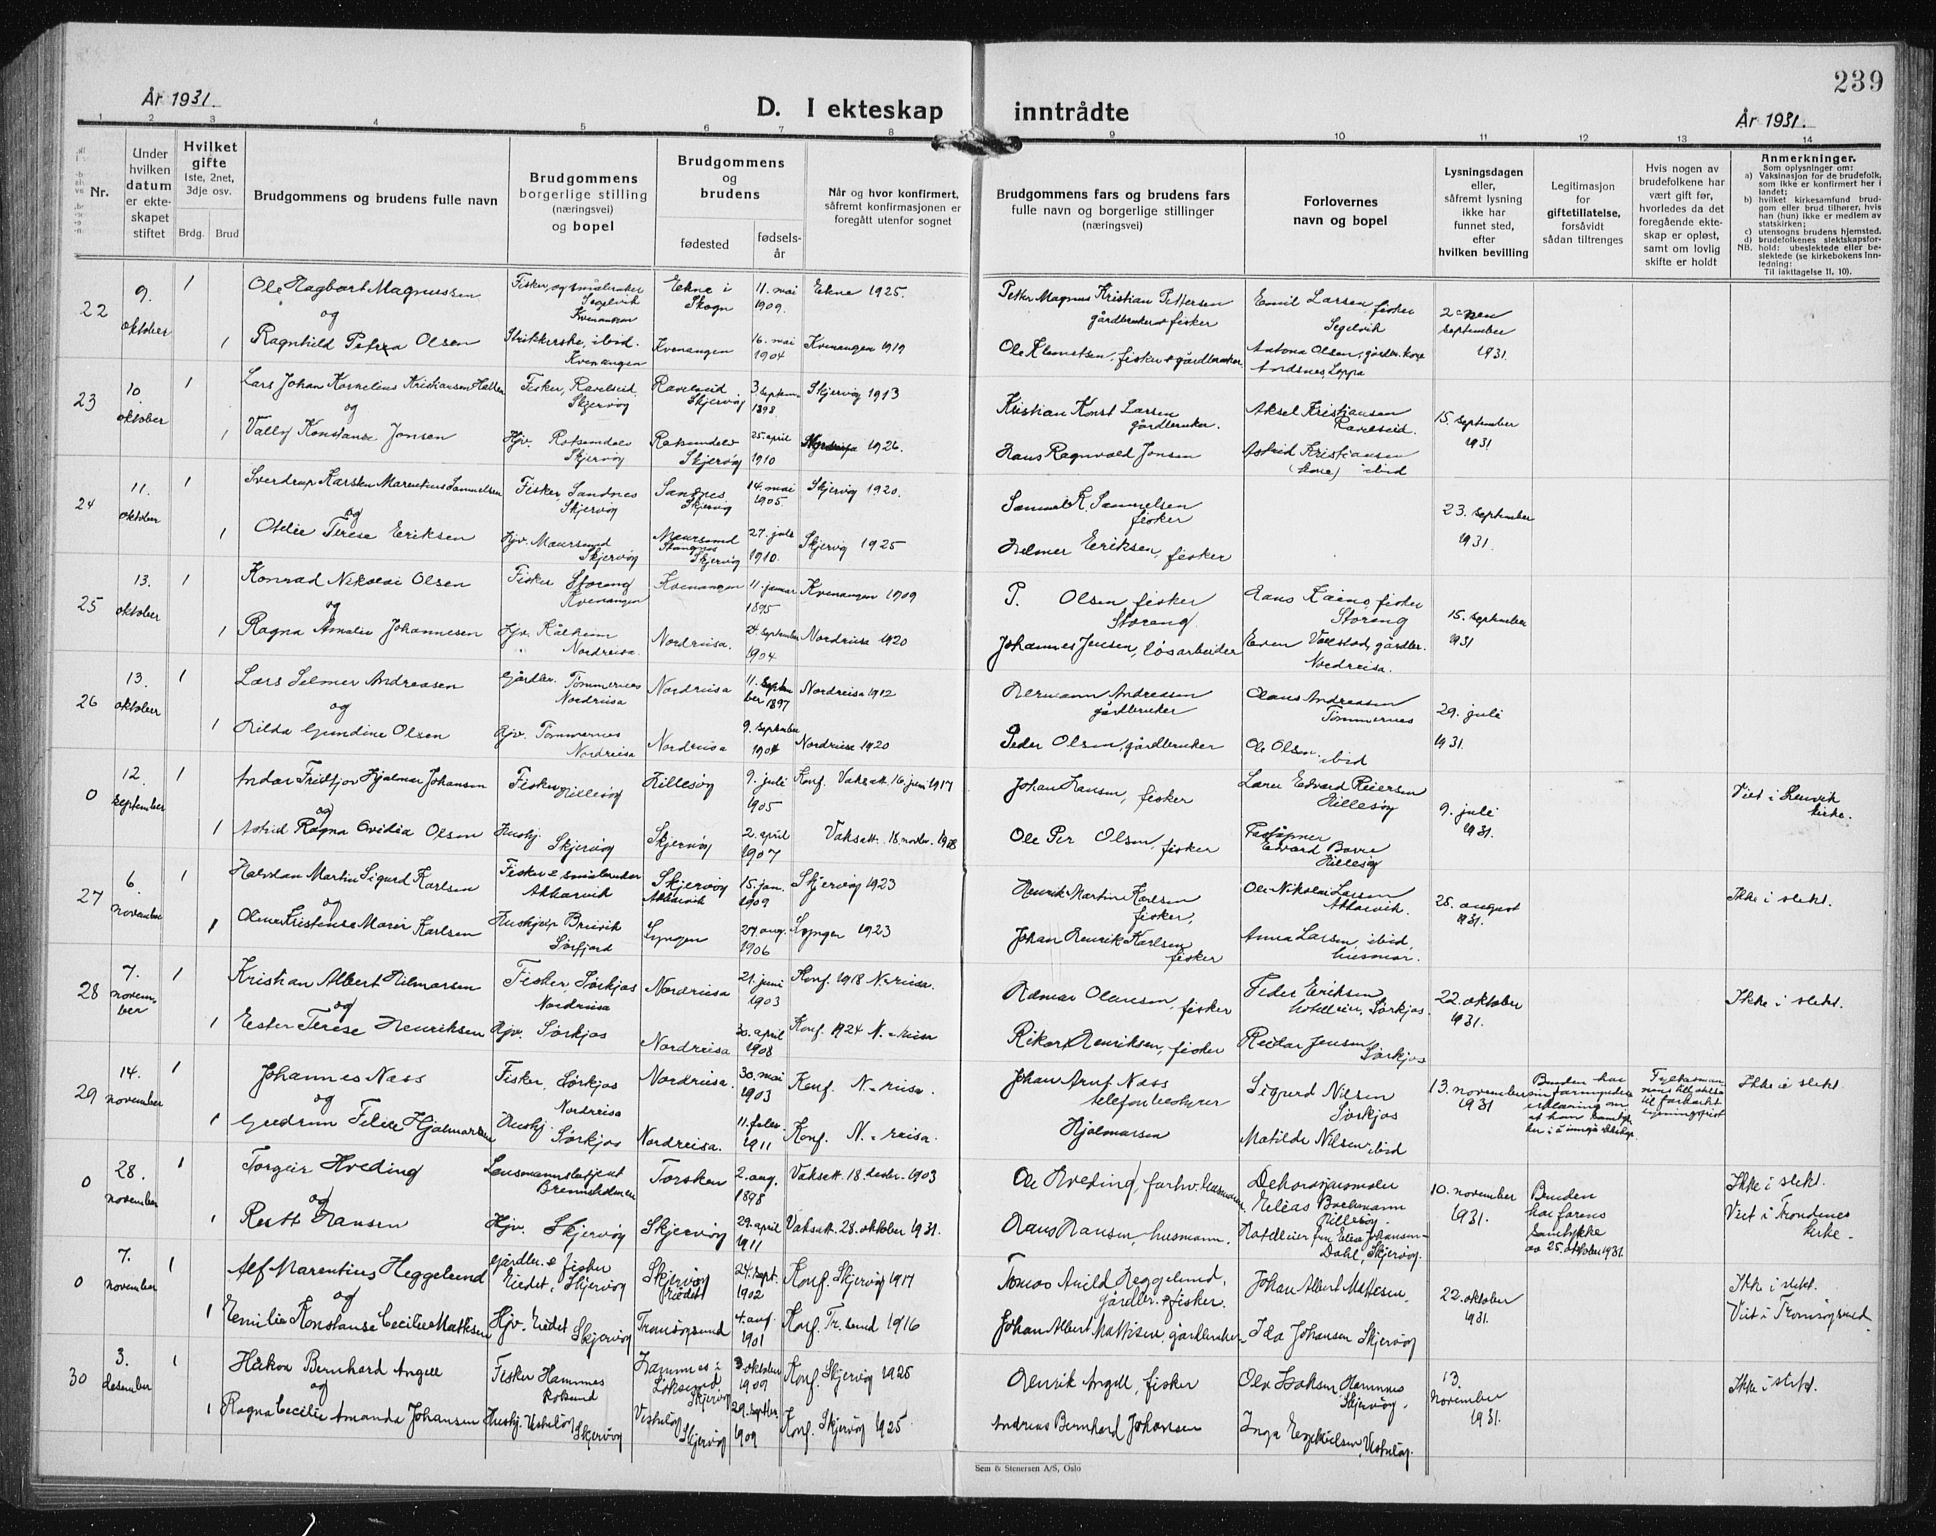 239
År 1931.
D. I ekteskap inntrådte
År 1931.
1 2 3 4 5 6 7 8 9 10 11 12 13 14
Nr.
Under hvilken datum er ekteskapet stiftet
Hvilket gifte
1ste, 2net, 3dje osv.
Brdg. Brud
Brudgommens og brudens fulle navn
Brudgommens borgerlige stilling (næringsvei) og bopel
Brudgommens og brudens
fødested
fødselsår
Når og hvor konfirmert, såfremt konfirmasjonen er foregått utenfor sognet
Brudgommens fars og brudens fars fulle navn og borgerlige stillinger (næringsvei)
Forlovernes navn og bopel
Lysningsdagen eller, såfremt lysning ikke har funnet sted, efter hvilken bevilling
Legitimasjon for giftetillatelse, forsåvidt sådan tiltrenges
Hvis nogen av brudefolkene har vært gift før, hvorledes da det foregående ekteskap er opløst, samt om lovlig skifte er holdt
Anmerkninger.
Som oplysninger om:
a) Vaksinasjon for de brudefolk, som ikke er konfirmert her i landet;
b) hvilket kirkesamfund brudgom eller brud tilhører, hvis han (hun) ikke er medlem av statskirken;
c) utensogns brudens hjemsted.
d) brudefolkenes slektskapsforhold: ubeslektede eller beslektede (se kirkebokens innledning:
NB. Til iakttagelse 11, 10).
22 9. oktober 1 Ole Hagbart Magnussen Fisker og småbruker Segelvik Kvenangen Ekne i Skogn 11. mai 1909. Ekne 1925. Petter Magnus Kristian Pettersen gårdbruker & fisker Emil Larsen, fisker Segelvik 2 september 1931.
og
1 Ragnhild Petra Olsen Strikkerske, ibid. Kvenangen Kvenangen 16. mai 1904 Kvenangen 1919 Ole Klemetsen, fisker & gårdbruker Antona Olsen, gårdbr. kone Andsnes, Loppa
23 10. oktober 1 Lars Johan Kornelius Kristiansen Fisker, Ravelseid Skjervøy Ravelseid Skjervøy 3 septem. 1898 Skjervøy 1913 Kristian Konst Larsen gårdbruker. Aksel Kristiansen Ravelseid. 15. september 1931
og
1 Vally Konstanse Jensen Hjv. Rotsundelv Skjervøy Rotsundelv Skjervøy 25. april 1910 1926. Hans Ragnvald Jensen Astrid Kristiansen (kone) ibid
24 11. oktober 1 Sverdrup Karsten Marentius Samuelsen Fisker, Sandnes Skjervøy Sandnes Skjervøy 14. mai 1905. Skjervøy 1920. Samuel K. Samuelsen fisker 23. september 1931.
og
1 Otelie Terese Eriksen Hjv. Maursund Skjervøy Maursund Stangnes Skjervøy 27. juli 1910. Skjervøy 1925 Helmer Eriksen, fisker
25 13. oktober 1 Konrad Nikolai Olsen Fisker Storeng Kvenangen Kvenangen 11. januar 1895 Kvenangen 1909 P. Olsen fisker Storeng Hans Kaino, fisker Storeng 15. september 1931
og
1 Ragna Amalie Johannesen Hjv. Kålheim Nordreisa. Nordreisa. 24. september 1904 Nordreisa 1920 Johannes Jensen, løsarbeider Even Vorstad, gårdbr. Nordreisa.
26 13. oktober 1 Lars Selmer Andreasen Gårdbr. Tømmernes Nordreisa Nordreisa 11. september 1897 Nordreisa 1912 Hermann Andreasen gårdbruker Claus Andreasen Tømmernes 29. juli 1931.
og
1 Hilda Gundine Olsen Hjv. Tømmernes Nordreisa Nordreisa 9. september 1904 Nordreisa 1920 Peder Olsen, gårdbruker Ole Olsen ibid
0 12. september 1 Andar Fridtjov Hjalmar Johansen Fisker Hillesøy Hillesøy 9. juli 1905 Konf. Vaksatt. 16 juni 1917 Johan Hansen, fisker Lars Edvard Reiersen Hillesøy 9. juli 1931. Viet i Lenvik kirke.
og
1 Astrid Ragna Ovidia Olsen Hushj. Skjervøy Skjervøy 2. april 1907 Vaksatt. 18. novbr. 1908 Ole Per Olsen, fisker Edvard Hillesøy
27 6. november 1 Halvdan Martin Sigurd Karlsen Fisker & småbruker Akkarvik Skjervøy Akkarvik 15. jan. 1909 Skjervøy 1923 Henrik Martin Karlsen fisker, Ole Nikolai Larsen Akkarvik. 25. august 1931. Ikke i slekt.
og
1 Kristense Marie Karlsen Hushjelp Sørfjord Lyngen 27. aug. 1906 Lyngen 1923 Johan Henrik Karlsen fisker Anna Larsen, ibid, husmor.
28 7. november 1 Kristian Albert Hilmarsen Fisker, Sørkjos Nordreisa Nordreisa 21. juni 1903 Konf. 1918 N. reisa. fisker Peder Eriksen hotelleier, Sørkjos. 22. oktober 1931. Ikke i slekt.
og
1 Ester Terese Henriksen Hjv. Sørkjos Nordreisa 30. april 1908 Konf. 1924 N. reisa Rikart Henriksen, fisker Reidar Jensen Sørkjos
29 14. november 1 Johannes Næss Fisker, Sørkjos Nordreisa Nordreisa. 30. mai 1903 Konf. N. reisa. Johan Arnt Næss telefonbestyrer Sigurd Nilsen Sørkjos 13. november 1931 Ikke i slekt.
og
1 Gudrun Hjalmarsen Hushj. Sørkjos Nordreisa. 11. febr. 1911 Konf. N. reisa. Hjalmarsen Matilde Nilsen ibid
0 28. november 1 Torgeir Hveding Lensmannsbetjent Brennsholmen Torsken 2. aug. 1898 Vaksatt. 18. desbr. 1903 Ole Hveding, forhv. lensmann Dekorasjonsmaler Elias Bochmann Hillesøy. 10. november 1931. Bruden har farens samtykke av 25. oktober 1931. Ikke i slekt. Viet i Trondenes kirke.
og
1 Hansen Hjv. Skjervøy Skjervøy 29. april 1911 Vaksatt. 28. oktober 1931. Hans Hansen, husmann. Hotelleier fru Elise Johansen-Dahl, Skjervøy.
0 7. november 1 Alf Marentius Heggelund gårdbr. & fisker Eidet, Skjervøy Skjervøy Eidet 24. sept. 1902 Konf. Skjervøy 1917 Tomas Arild Heggelund, gårdbr. & fisker. Johan Albert Mattisen. 22. oktober 1931. Ikke i slekt. Viet i Tromsøysund.
og
1 Emilie Konstanse Cecilie Mattisen Hjv. Eidet Skjervøy Tromsøysund 4. aug. 1901 Konf. Tr. sund 1916 Johan Albert Mattisen, gårdbruker Ida Johansen Skjervøy
30 3. desember 1 Håkon Bernhard Angell Fisker Hamnnes Rotsund Hamnnes i Rotsund Skjervøy 3 oktober 1909 Konf. Skjervøy 1925 Henrik Angell, fisker Ole Isaksen, Hamnnes Skjervøy. 13. november 1931. Ikke i slekt.
og
1 Ragna Cecilie Amanda Johansen Hushj. Skjervøy Skjervøy 29. septbr. 1909 Konf. Skjervøy 1925. Andreas Bernhard Johansen Inga
Sem & Stenersen A/S, Oslo